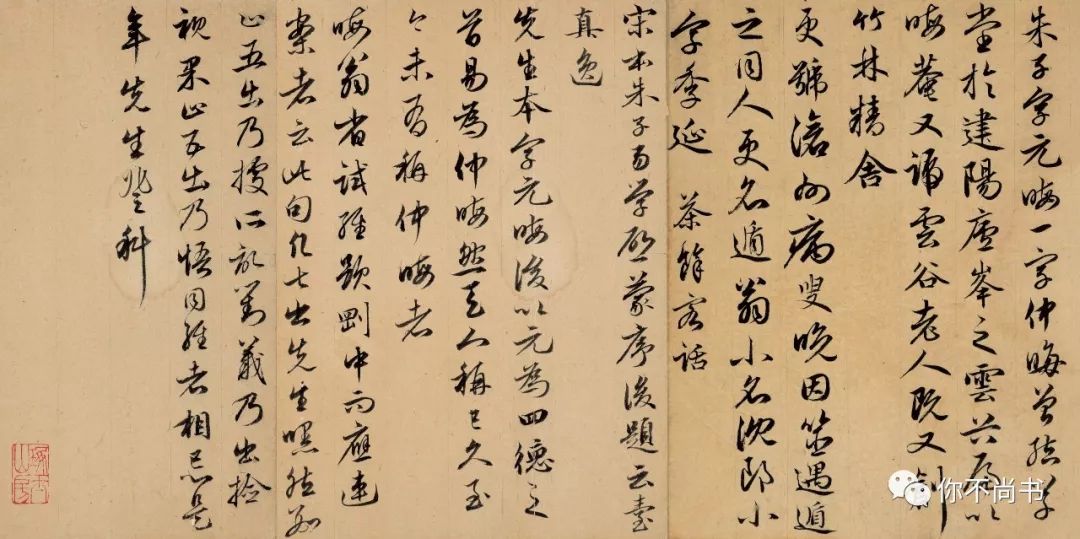 朱子字元晦一字仲晦曾結草
堂於建陽廬峯之雲谷扁以
晦菴又號雲谷老人既又創
竹林精舍
更號滄州病叟晚因筮遇遯
之同人更名遯翁小名沈郎小
字季延 茶餘客話
宋本朱子易學啟蒙序後題云臺
真逸
先生本字元晦後以元為四德之
首易為仲晦然天人稱已久至
今未有稱仲晦者
晦翁省試經題剛中而應連
案者云此句凡七出先生嘿然
以五出乃據所記對義乃出檢
視果以五出乃悟同經者相忘是
年先生登科
你不尚书